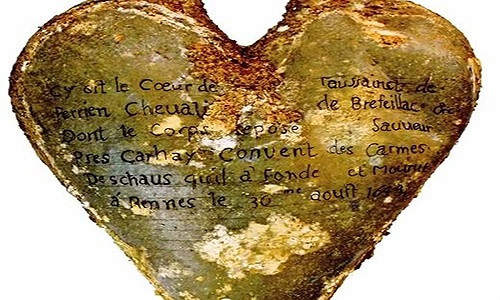 Cy Git le Cœur de Toussainct de
Perrien Chevali de Brefeillac
Dont le Corps repose Sauveur
Pres Carhay Convent des Carmes
Deschaus quil à Fonde et Mourut
à Rennes le 30 me aouſt